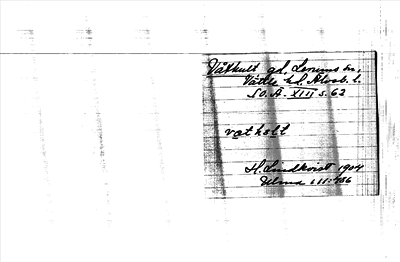 Växhult gd, Lerums sn,
Vättle hd. Älvsb. l.
SOÄ. XIII s. 62
vat holt
H. Lindkvist 1904
Ulma 111:436